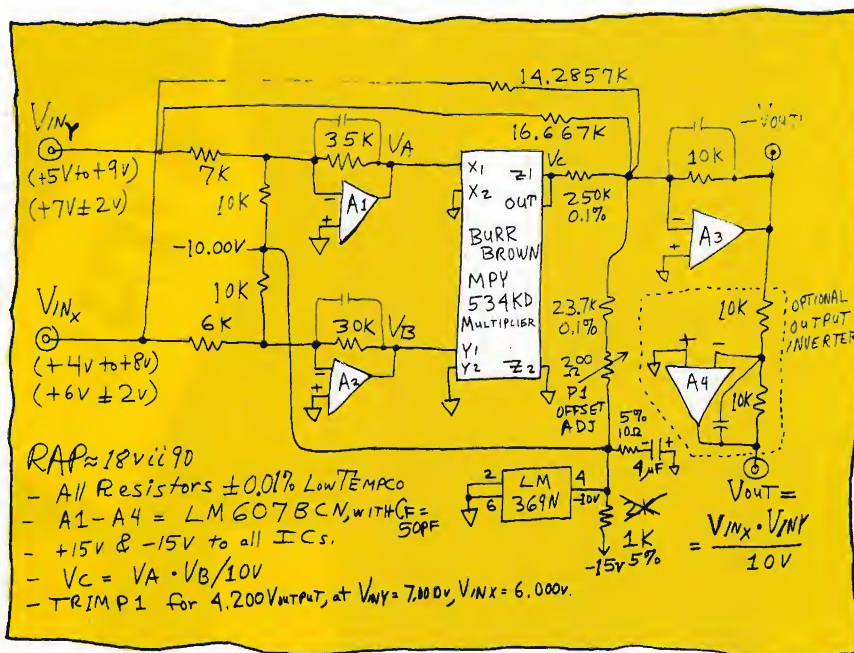 14.2857K
16.667K
VINY
(+5V to +9V)
(+7V ± 2V)
7K
35K
VA
A1
- +
10K
-10.00V
10K
VINX
(+4V to +8V)
(+6V ± 2V)
6K
30K
VB
A2
- +
X1
X2
Z1
OUT
BURR
BROWN
MPY
534KD
MULTIPLIER
Y1
Y2
Z2
VC
250K
0.1%
10K
-VOUT
A3
- +
23.7K
0.1%
200
Ω
P1
OFFSET
ADJ
10K
OPTIONAL
OUTPUT
INVERTER
A4
+ -
10K
5%
10Ω
4µF
- +
LM
369N
2
6
4
-10V
2K
1K
5%
-15V
VOUT =
= VINX · VINY
10V
RAP≈18vii90
- All Resistors ±0.01% LOW TEMPCO
- A1-A4 = LM607BCN, with CF =
50PF
- +15V & -15V to all ICs.
- VC = VA · VB/10V
- TRIM P1 for 4.200 VOUTPUT, at VINY = 7.000V, VINX = 6.000V.